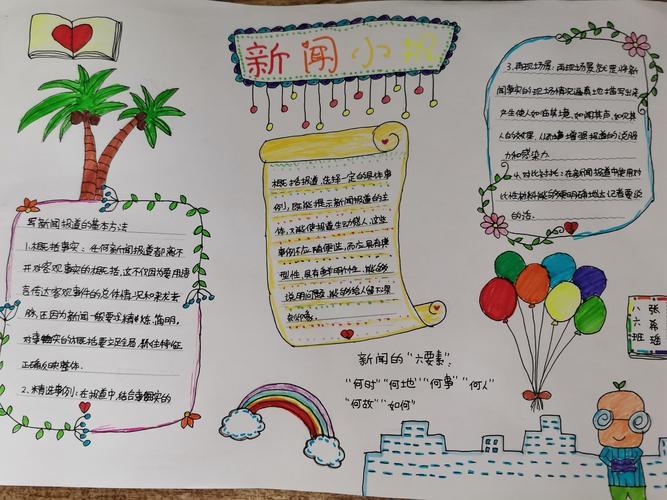 新闻小报
写新闻报道的基本方法
1.概括事实：任何新闻报道都离不
开对客观事实的概括，这不仅因为要用语
言传达客观事件的总体情况和来龙去
脉，还因为新闻一般要求精炼、简明，
对事物的概括要立足全局，抓住特征，
正确反映整体。
2.精选事例：在报道中，结合事实的
概括报道，选择一定的具体事
例，既能提示新闻报道的主
体，又能使报道生动感人，这些
事例不应随便选，而应具有典
型性，具有鲜明个性，能够
说明问题，能够给人留下深
刻印象。
3.再现场景：再现场景就是将新
闻事实的现场情况逼真地描写出来
产生使人如临其境、如闻其声、如见其
人的效果，从而增强报道的说服
力和感染力。
4.对比衬托：在新闻报道中使用对
比性材料能够更明确地
的话。
新闻的“六要素”：
“何时”“何地”“何事”“何人”
“何故”“如何”
八六班
张
瑶